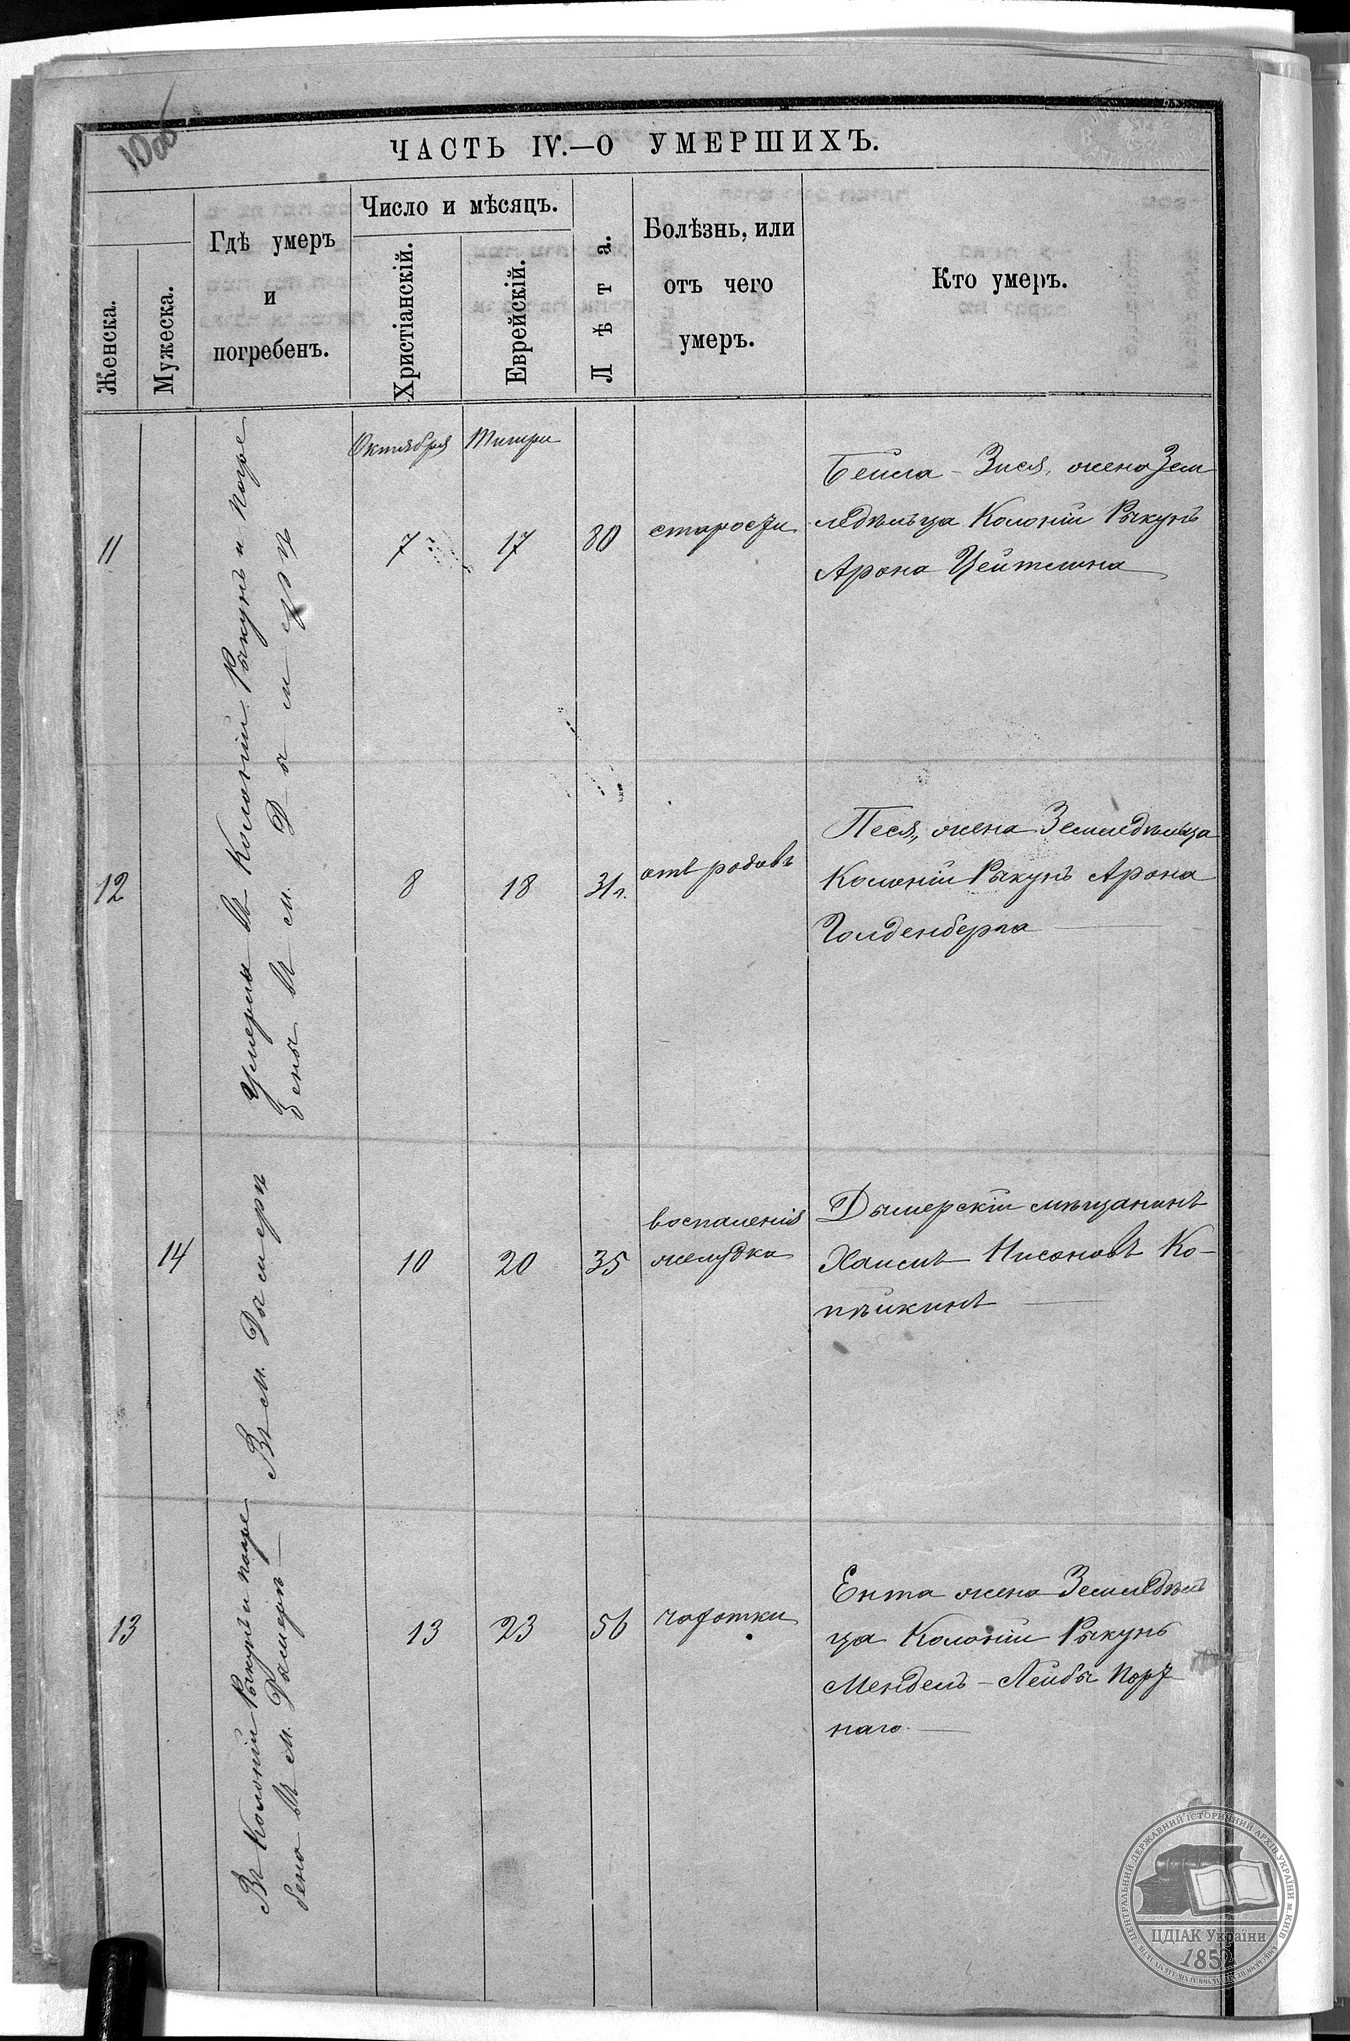 10об
ЧАСТЬ IV.—О УМЕРШИХЪ.
Женска.
Мужеска.
Гдѣ умеръ
и
погребенъ.
Число и мѣсяцъ.
Христіанскій.
Еврейскій.
Лѣта.
Болѣзнь, или
отъ чего
умеръ.
Кто умеръ.
Октября
Тишри
11
Умерли въ Колоніи Рыкунъ и погре
бены въ м. Дымерѣ
7
17
80
старости
Бейла - Зися, жена Зем
ледѣльца Колоніи Рыкунъ
Арона Цейтлина
12
8
18
31 л.
отъ родовъ
Песя, жена Земледѣльца
Колоніи Рыкунъ Арона
Голденберга
14
Въ м. Дымерѣ
10
20
35
воспаленія
желудка
Дымерскій мѣщанинъ
Хаимъ Нисоновъ Ко-
пѣйкинъ
13
Въ Колоніи Рыкунъ и погре
бена въ м. Дымерѣ
13
23
56
чахотки
Ента жена Земледѣль
ца Колоніи Рыкунь
Мендель - Лейбы Порт
наго
ЦЕНТРАЛЬНИЙ ДЕРЖАВНИЙ ІСТОРИЧНИЙ АРХІВ УКРАЇНИ м. КИЇВ
ЦДІАК України
1852